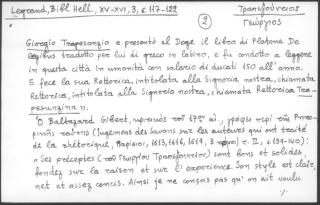 Legrand, Bibl. Hell., XV-XVI, 3, σ. 117-122
Τραπεζούντιος
Γεώργιος
2
Giorgio Trapesonzio e presentò al Doge il libro di Platone De
legibus tradotto per lui di greco in latino, e fu condotto a leggere
in questa città in umanità con salario di ducati 150 all'anno.
E fece la sua Rettorica, intitolata alla Signoria nostra, chiamata
Rettorica, intitolata alla Signoria nostra, chiamata Rettorica Tra-
pesunzina».
Ὁ Balthazard Gibert, κριτικὸς τοῦ 17ου αἰ., γράφει περὶ τῆς Ρητο-
ρικῆς (Jugemens des Savans sur les auteurs qui ont traité
de la rhétorique, Παρίσιοι, 1713, 1716, 1719, 3 τόμοι) τ. II, σ. 134-140):
«Ses préceptes (τοῦ Γεωργίου Τραπεζουντίου) sont bons et solides,
fondez sur la raison et sur l'experience. Son style est clair,
net et assez concis. Ainsi je ne conçois pas qu'on ait voulu
./.